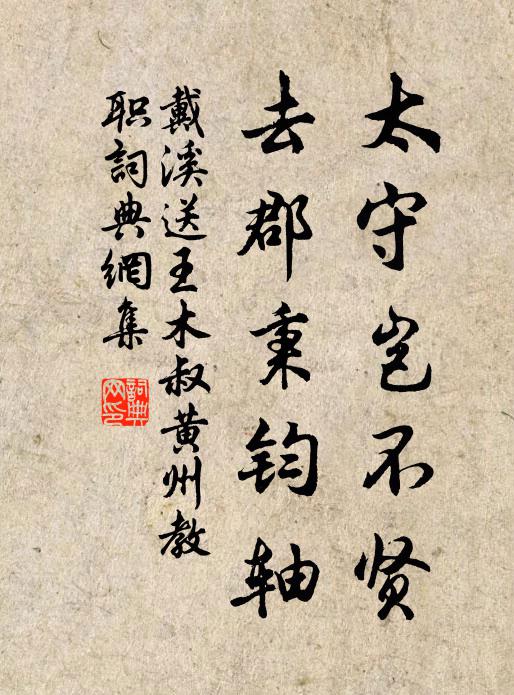 太守岂不贤
去郡秉钧轴
戴溪送王木叔黄州教
职詞典網集
詞典网印